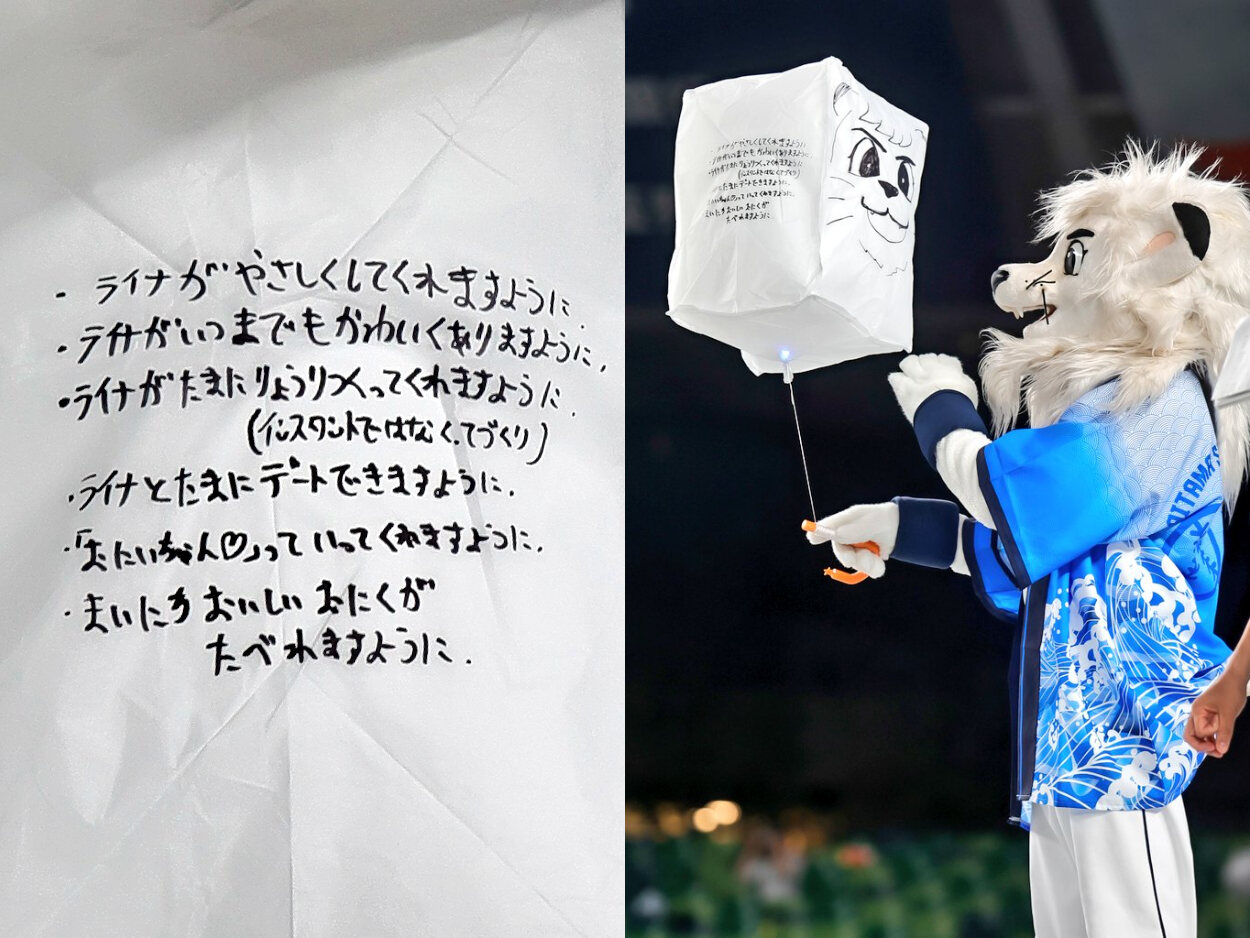 ・ライナがやさしくしてくれますように.
・ライナがいつまでもかわいくありますように.
・ライナがたまにりょうりつくってくれますように.
(インスタントではなく、てづくり)
・ライナとたまにデートできますように.
・「おにいちゃん♡」っていってくれますように.
・まいにち おいしい おにくが
たべれますように.
ライナがやさしくしてくれますように
・ライナがいつまでもかわいくありますように.
・ライナがたまにりょうりつくってくれますように
(インスタントではなくてづくり)
たまにデートできますように.
おにいちゃん♡っていってくれますように.
まいにちおいしいおにくが
たべれますように